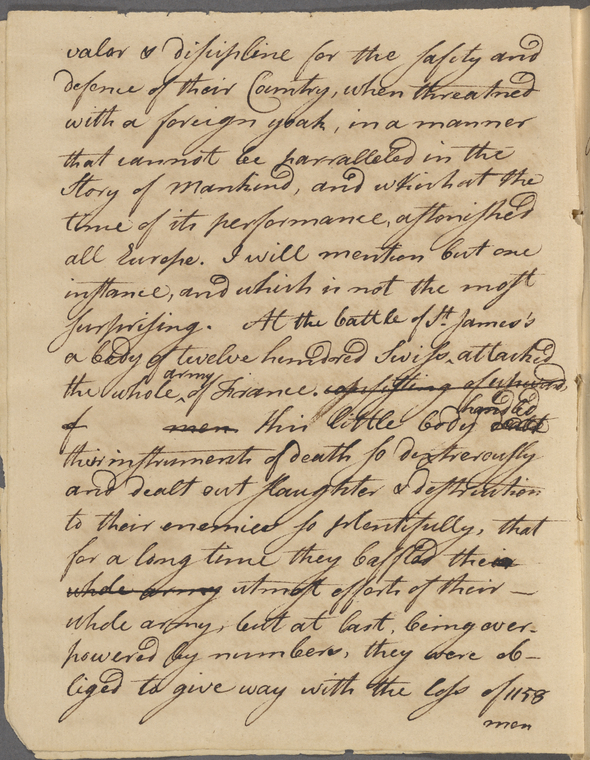 valor & discipline for the safety and
defence of their Country, when threatned
with a foreign yoak, in a manner
that cannot be parralleled in the
Story of Mankind, and which at the
time of its performance, astonished
all Europe. I will mention but one
instance, and which is not the most
surprising. At the battle of St. James's
a body of twelve hundred Swiss, attacked
the whole army of France. consisting of upward
of men this little body handled
their instruments of death so dextrerously
and dealt out slaughter & destruction
to their enemies so plentifully, that
for a long time they baffled the
whole army utmost efforts of their
whole army, but at last, being over-
powered by numbers, they were ob-
liged to give way with the loss of 1158
men